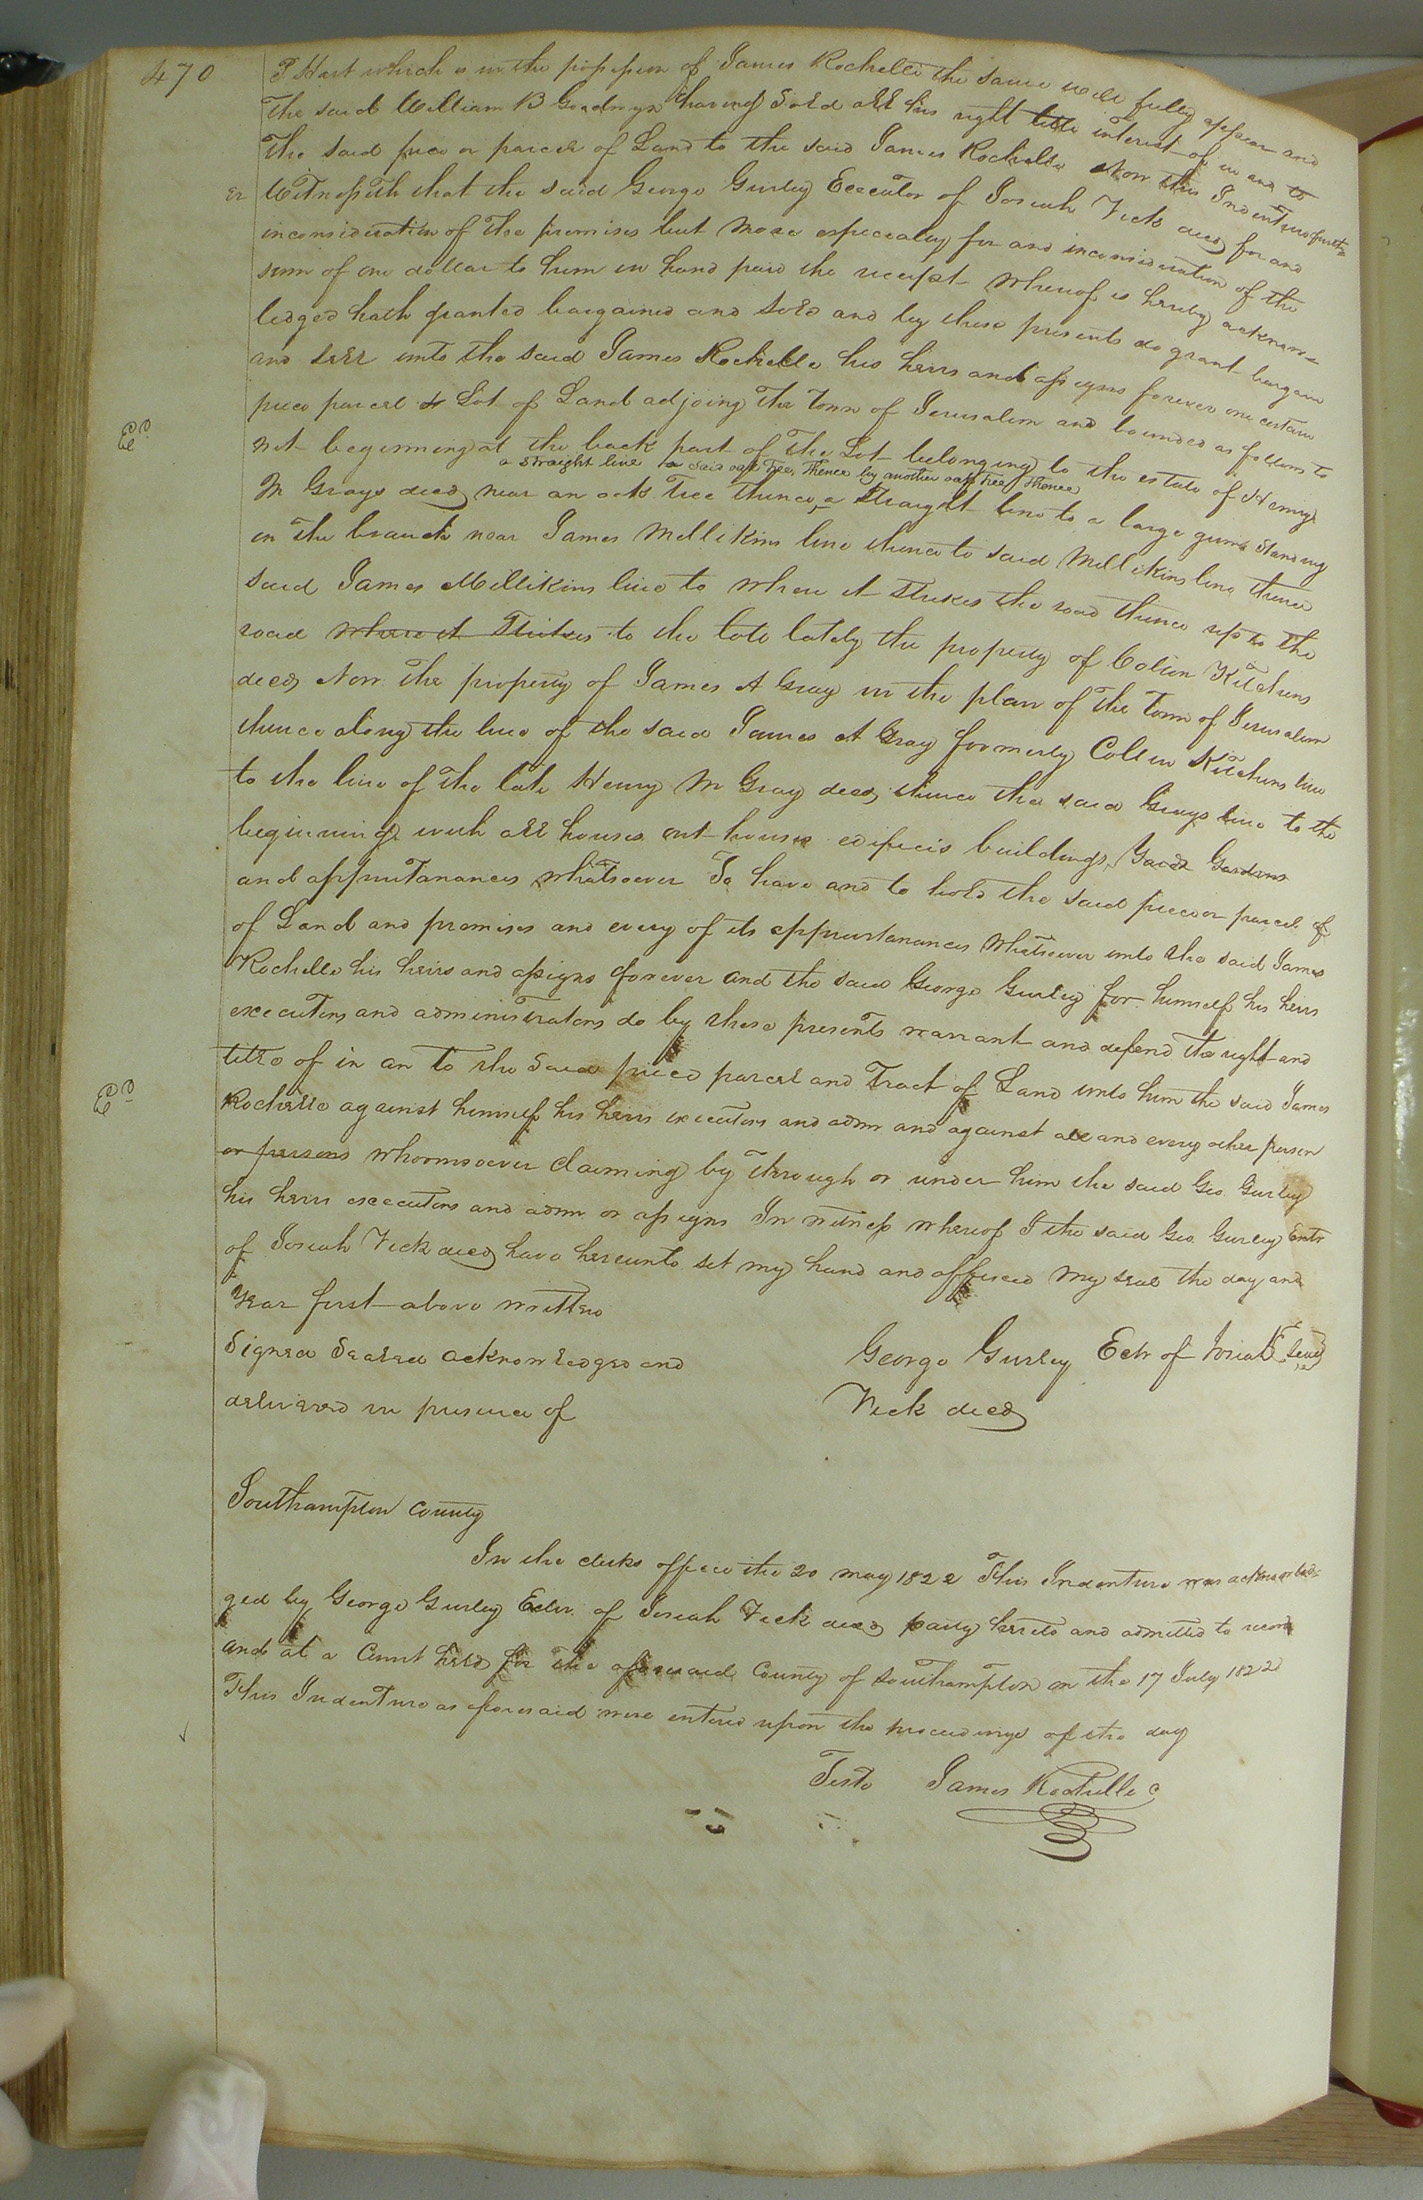 470
T Hart which is in the possession of James Rochelle the same will fully appear and
The said William B Goodwyn having sold all his right title interest of in and to
The said piece or parcel of Land to the said James Rochelle Now this Indenture furth=
er Witnesseth that the said George Gurley Executor of Josiah Vick decd for and
inconsideration of the premises but more especially for and inconsideration of the
sum of one dollar to him in hand paid the receipt whereof is hereby acknow=
ledged hath granted bargained and sold and by these presents do grant bargain
and sell unto the said James Rochelle his heirs and assigns forever one certain
piece parcel or Lot of Land adjoing the Town of Jerusalem and bounded as follows to
wit beginning at the back part of the Lot belonging to the estate of Henry
a straight line to said oak tree, thence by another oak tree, thence
M Grays decd near an oak Tree thence, a straight line to a large gum standing
in the branch near James Millikins line thence to said Millikins line thence
said James Millikins line to where it strikes the road thence up to the
road where it Strikes to the lots lately the property of Colien Kitchens
decd, Now the property of James A Gray in the plan of the Town of Jerusalem
thence along the line of the said James A Gray formerly Collin Kitchens line
to the line of the late Henry M Gray decd, thence the said Grays line to the
beginning with all houses out houses edifices buildings, Yards Gardens
and appurtanances whatsoever To have and to hold the said piece or parcel of
of Land and premises and every of its appurtanances whatsoever unto the said James
Rochelle his heirs and assigns forever and the said George Gurley for himself his heirs
executors and administrators do by these presents warrant and defend the right and
title of in an to the said piece parcel and Tract of Land unto him the said James
Rochelle against himself his heirs executors and admr and against all and every other person
or persons whomsoever claiming by through or under him the said Geo Gurley
his heirs executors and admr or assigns In witness whereof I the said Geo Gurley Exetr
of Josiah Vick decd have hereunto set my hand and affixed my seal the day and
Year first above written
Signed Sealed acknowledged and George Gurley Extr of Josiah Seal
delivered in presence of Vick decd
Southampton County
In the clerks office the 20 may 1822 This Indenture was acknowled=
ged by George Gurley Extr of Josiah Vick decd party hereto and admitted to record
and at a Court held for the aforesaid County of Southampton on the 17 July 1822
This Indenture as aforesaid were entered upon the proceedings of the day
Teste James Rochelle C